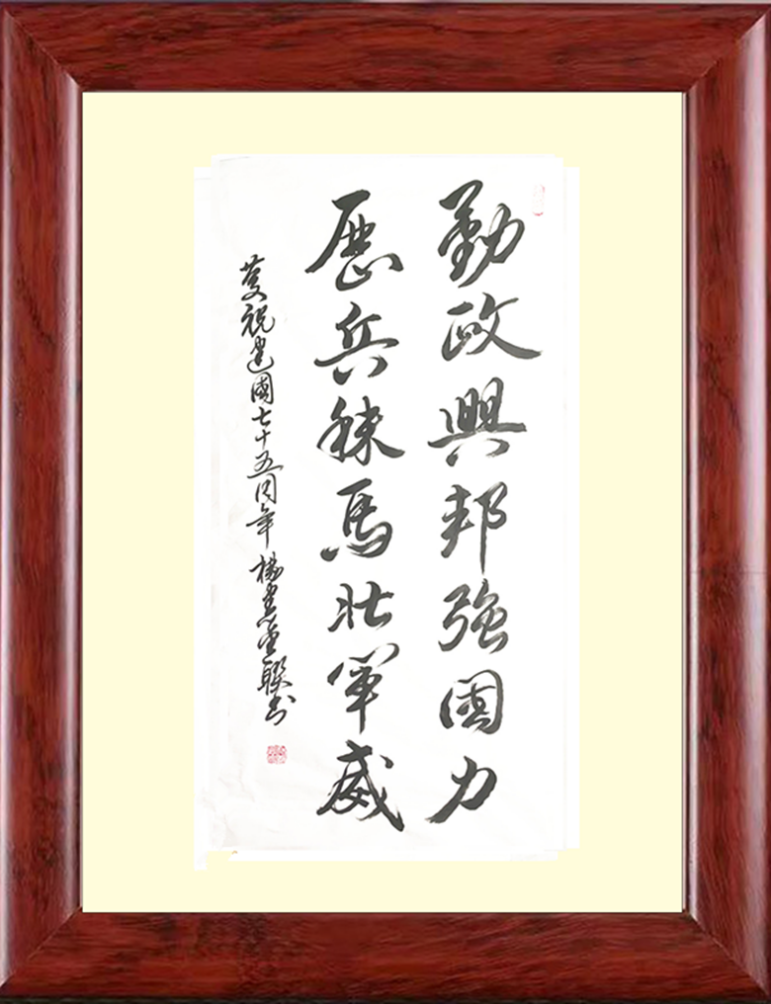 勤政興邦強國力
歷兵秣馬壯軍威
慶祝建國七十五周年 楊聯書